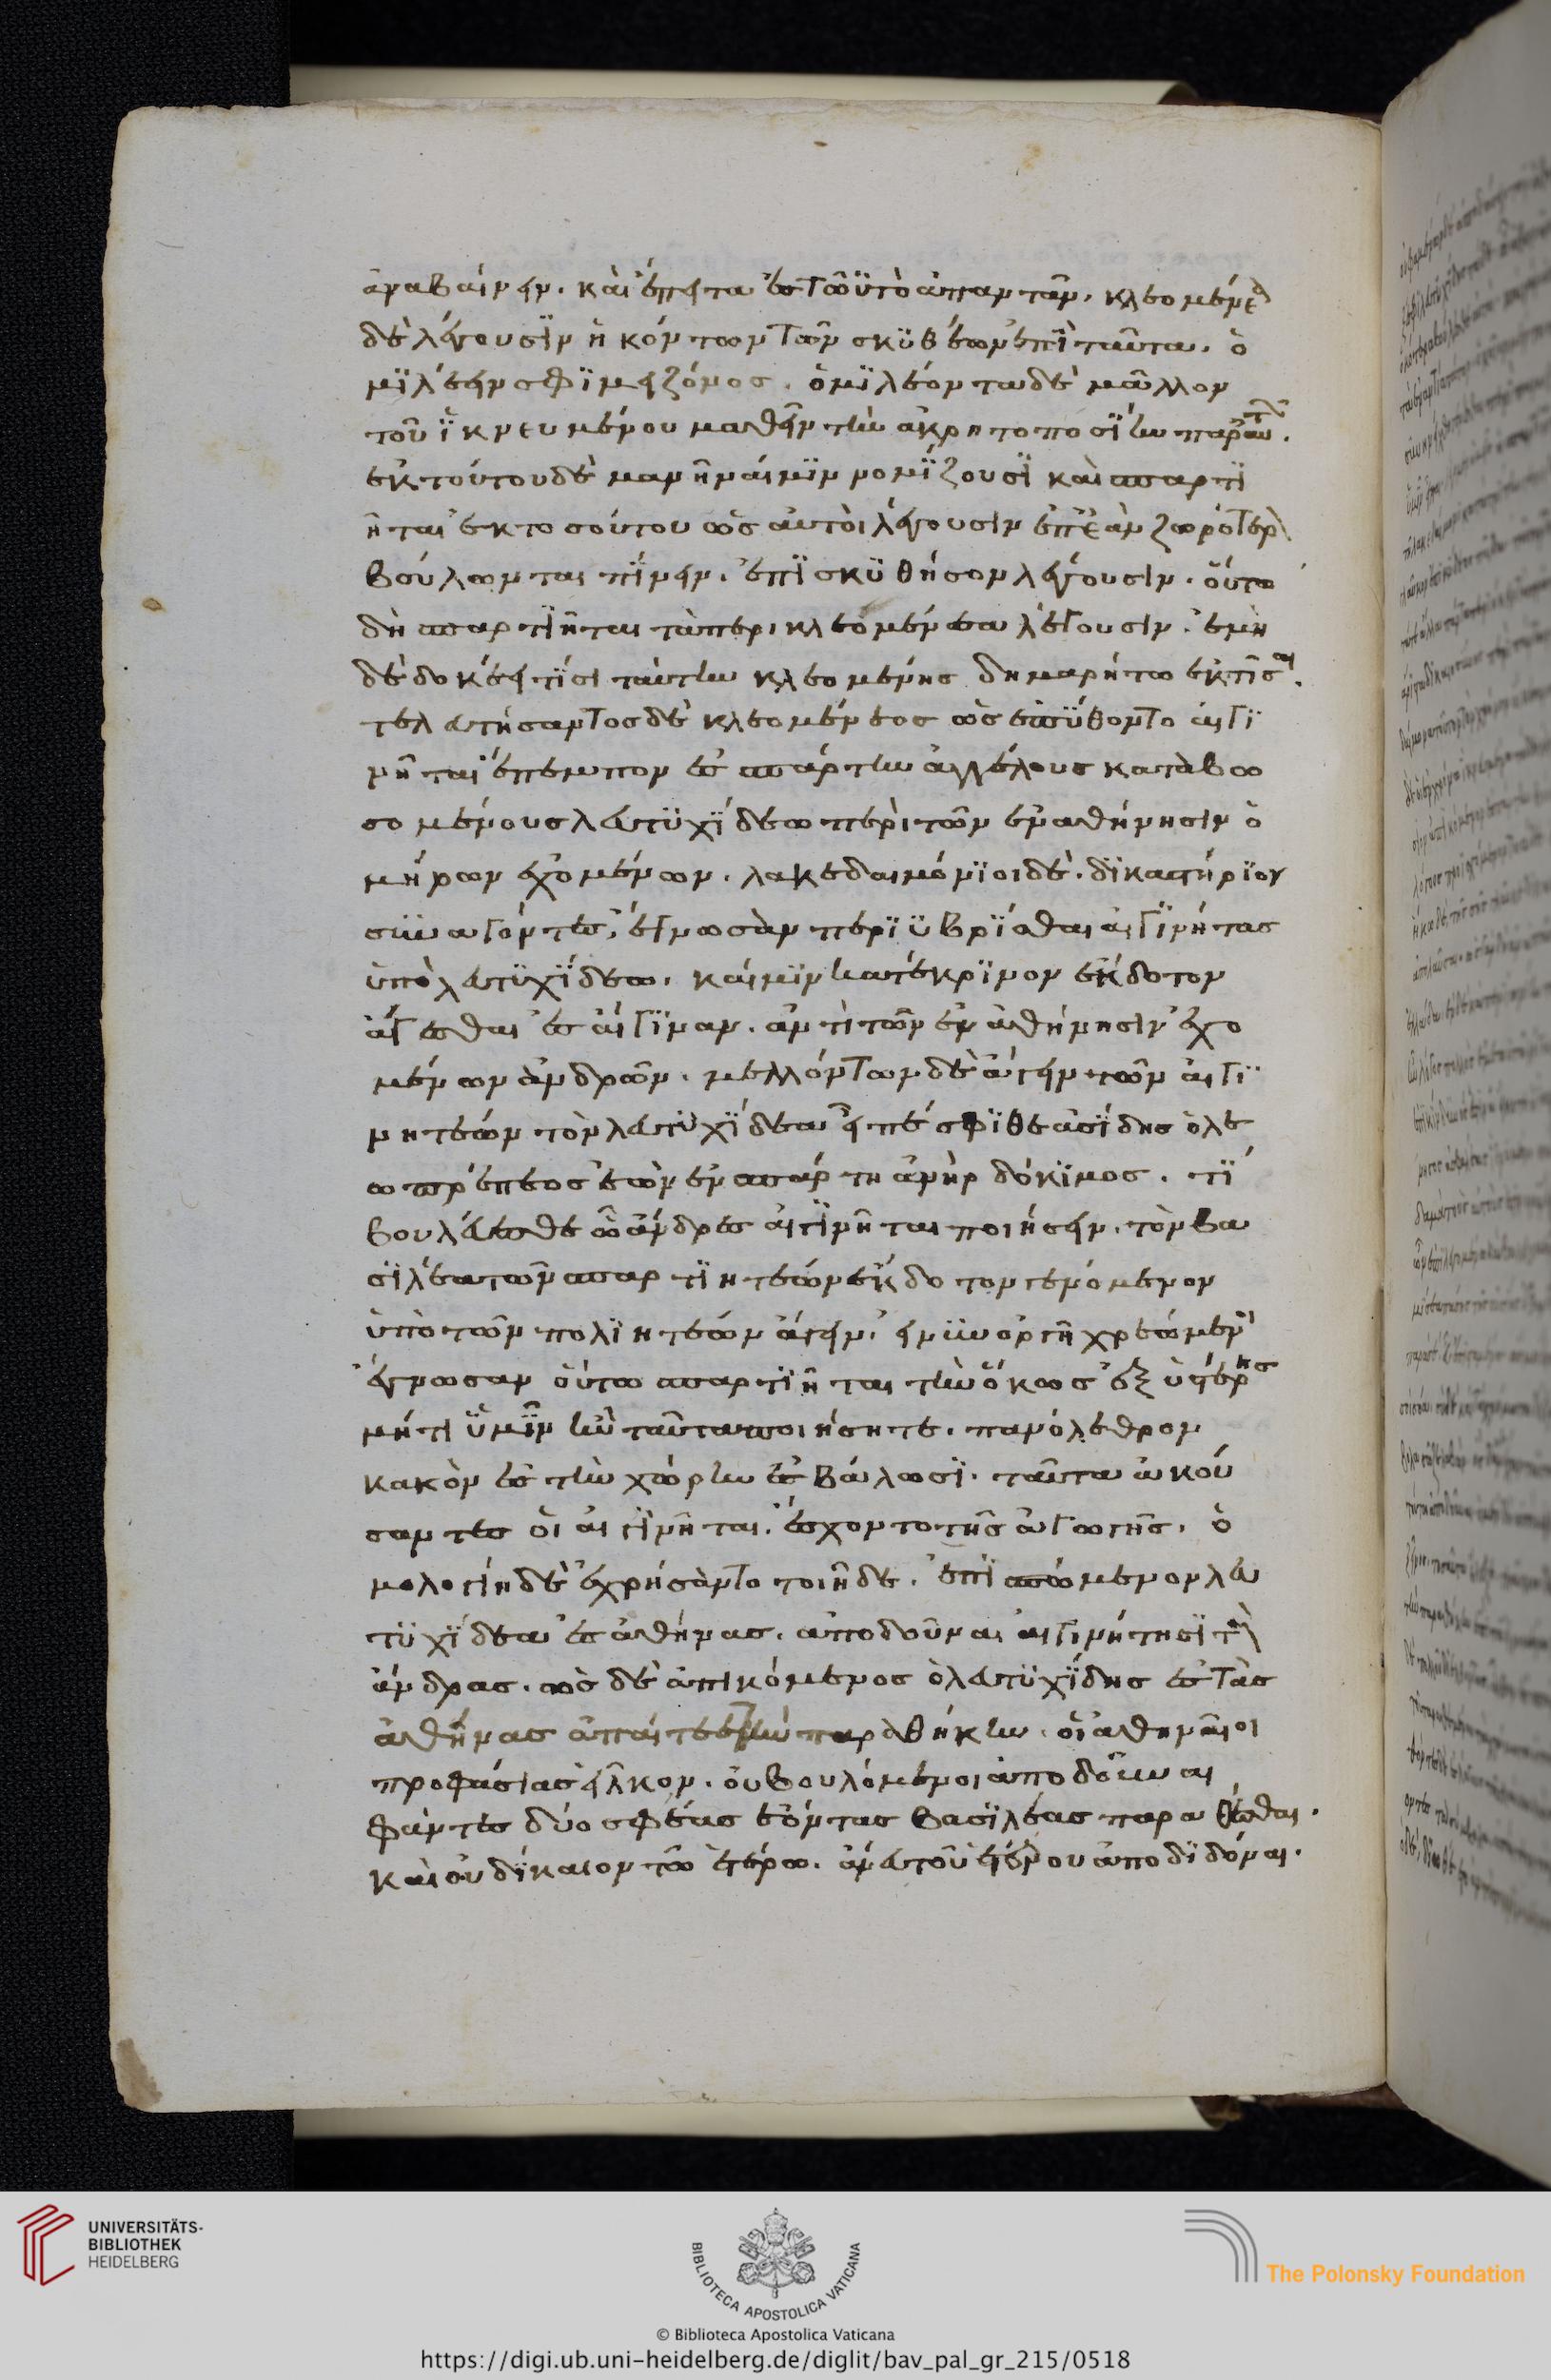 ἀναβαίνειν. καὶ ἔπειτα ἐς τὠυτὸ ἀπαντᾶν. κλεομένεα
δὲ λέγουσϊν ἡκόντων τῶν σκϋθέων ἐπῒ ταῦτα. ὁ
μϊλέειν σφϊ μειζόνως. ὁμϊλέοντα δὲ μᾶλλον
τοῦ ἱκνευμένου μαθεῖν τὴν ἀκρητοποσΐην παρ' αὐτῶν.
ἐκ τούτου δὲ μανῆναί μϊν νομΐζουσϊ καὶ σπαρτϊ
ῆται ἐκ τοσούτου ὡς αὐτοὶ λέγουσιν ἐπεὰν ζωρότερον
βούλωνται πΐνειν. ἐπϊσκϋθησον λέγουσιν. οὕτω
δὴ σπαρτϊῆται τὰ περι κλεομένεα λέγουσιν. ἐμοὶ
δὲ δοκέει τΐσι ταύτην κλεομένης δημαρήτω ἐκτῖσαι.
τελευτήσαντος δὲ κλεομένεος ὡς ἐπΰθοντο αἰγϊ
νῆται ἔπεμπον ἐς σπάρτην ἀγγέλους καταβω
σομένους λευτϋχΐδεω περὶ τῶν ἐν ἀθήνησιν ὁ
μήρων ἐχομένων. λακεδαιμόνϊοι δὲ. δϊκαστήρϊον
συναγαγόντες, ἔγνωσὰν περϊϋβρΐσθαι αἰγϊνήτας
ὑπὸ λευτϋχΐδεω. καί μϊν κατέκρϊνον ἔκδοτον
ἄγεσθαι ἐς αἴγϊναν. ἀντὶ τῶν ἐν ἀθήνησιν ἐχο
μένων ἀνδρῶν. μελλόντων δὲ ἄγειν τῶν αἰγϊ
νητέων τὸν λευτϋχΐδεα εἶπέ σφϊ θεασΐδης ὁ λε
ωπρέπεος ἐὼν ἐν σπάρτη ἀνὴρ δόκϊμος. τΐ
βουλεύεσθε ὦ ἄνδρες αἰγϊνῆται ποιήσειν. τὸν βα
σϊλέα τῶν σπαρτϊητέων ἔκδοτον γενόμενον
ὑπὸ τῶν πολϊητέων ἄγειν. εἰ νῦν ὀργῆ χρεώμενοι
ἔγνωσαν οὕτω σπαρτϊῆται τὴν ὅκως ἐξ ὑστέρης
μή τι ὑμῖν ἢν ταῦτα ποιήσητε. πανόλεθρον
κακὸν ἐς τὴν χώρην ἐσβάλωσϊ. ταῦτα ἀκού
σαντες οἱ αἰγϊνῆται. ἔσχοντο τῆς ἀγωγῆς. ὁ
μολογίη δὲ ἐχρήσαντο τοιῆδε. ἐπϊσπώμενον λευ
τϋχΐδεα ἐς ἀθήνας. ἀποδοῦναι αἰγινήτησϊ τοὺς
ἄνδρας. ὡς δὲ ἀπικόμενος ὁ λευτϋχΐδης ἐς τὰς
ἀθήνας ἀπαίτεε τὴν παραθήκην. οἱ ἀθηναῖοι
προφάσιας εἷλκον. οὐ βουλόμενοι ἀποδοῦναι
φάντες δύο σφέας ἐόντας βασϊλέας παραθέσθαι.
καὶ οὐ δίκαιον τῶ ἑτέρω. ἄνευ τοῦ ἑτέρου ἀποδϊδόναι.
UNIVERSITÄTS-
BIBLIOTHEK
HEIDELBERG
BIBLIOTECA APOSTOLICA VATICANA
The Polonsky Foundation
© Biblioteca Apostolica Vaticana
https://digi.ub.uni-heidelberg.de/diglit/bav_pal_gr_215/0518